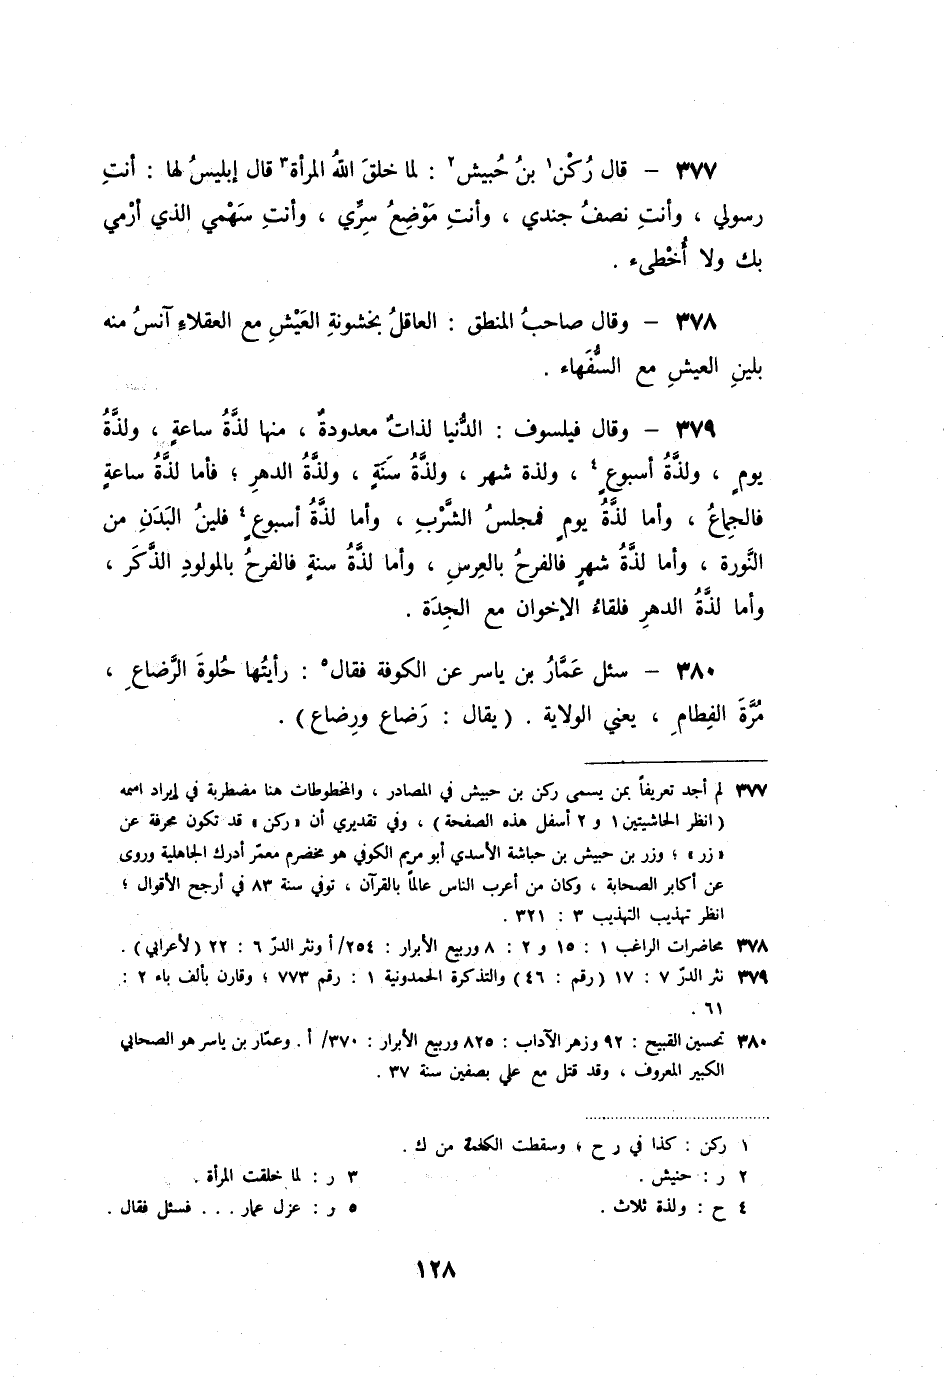 ٣٧٧ – قال رُكْن١ بنُ حُبيش٢ : لما خلقَ اللهُ المرأة٣ قال إبليسُ لها : أنتِ
رسولي ، وأنتِ نصفُ جندي ، وأنتِ مَوْضِعُ سِرِّي ، وأنتِ سَهْمي الذي أرْمي
بك ولا أُخْطىء .
٣٧٨ – وقال صاحبُ المنطق : العاقلُ بخشونةِ العَيْشِ مع العقلاءِ آنسُ منه
بلينِ العيشِ مع السُّفَهاء .
٣٧٩ – وقال فيلسوف : الدُّنيا لذاتٌ معدودةٌ ، منها لذَّةُ ساعةٍ ، ولذَّةُ
يومٍ ، ولذَّةُ أسبوعٍ٤ ، ولذة شهر ، ولذَّةُ سَنَةٍ ، ولذَّةُ الدهرِ ؛ فأما لذَّةُ ساعةٍ
فالجِماعُ ، وأما لذَّةُ يومٍ فمجلسُ الشَّرْبِ ، وأما لذَّةُ أسبوعٍ٤ فلينُ البَدَنِ من
النَّورة ، وأما لذَّةُ شهرٍ فالفرحُ بالعِرسِ ، وأما لذَّةُ سنةٍ فالفرحُ بالمولودِ الذَّكَر ،
وأما لذَّةُ الدهرِ فلقاءُ الإخوان مع الجِدَة .
٣٨٠ – سئل عَمَّارُ بن ياسر عن الكوفة فقال٥ : رأيتُها حُلوةَ الرَّضاعِ ،
مُرَّةَ الفِطامِ ، يعني الولاية . (يقال : رَضاع ورِضاع) .
٣٧٧ لم أجد تعريفاً بمن يسمى ركن بن حبيش في المصادر ، والمخطوطات هنا مضطربة في إيراد اسمه
(انظر الحاشيتين ١ و ٢ أسفل هذه الصفحة) ، وفي تقديري أن «ركن» قد تكون محرفة عن
«زر» ؛ وزر بن حبيش بن حباشة الأسدي أبو مريم الكوفي هو مخضرم معمّر أدرك الجاهلية وروى
عن أكابر الصحابة ، وكان من أعرب الناس عالماً بالقرآن ، توفي سنة ٨٣ في أرجح الأقوال ؛
انظر تهذيب التهذيب ٣ : ٣٢١ .
٣٧٨ محاضرات الراغب ١ : ١٥ و ٢ : ٨ وربيع الأبرار : ٢٥٤/ أ ونثر الدرّ ٦ : ٢٢ (لأعرابي) .
٣٧٩ نثر الدرّ ٧ : ١٧ (رقم : ٤٦) والتذكرة الحمدونية ١ : رقم ٧٧٣ ؛ وقارن بألف باء ٢ :
٦١ .
٣٨٠ تحسين القبيح : ٩٢ وزهر الآداب : ٨٢٥ وربيع الأبرار : ٣٧٠/ أ . وعمّار بن ياسر هو الصحابي
الكبير المعروف ، وقد قتل مع علي بصفين سنة ٣٧ .
١ ركن : كذا في ر ح ؛ وسقطت الكلمة من ك .
٢ ر : حنيش . ٣ ر : لما خلقت المرأة .
٤ ح : ولذة ثلاث . ٥ ر : عزل عمار . . . فسئل فقال .
١٢٨